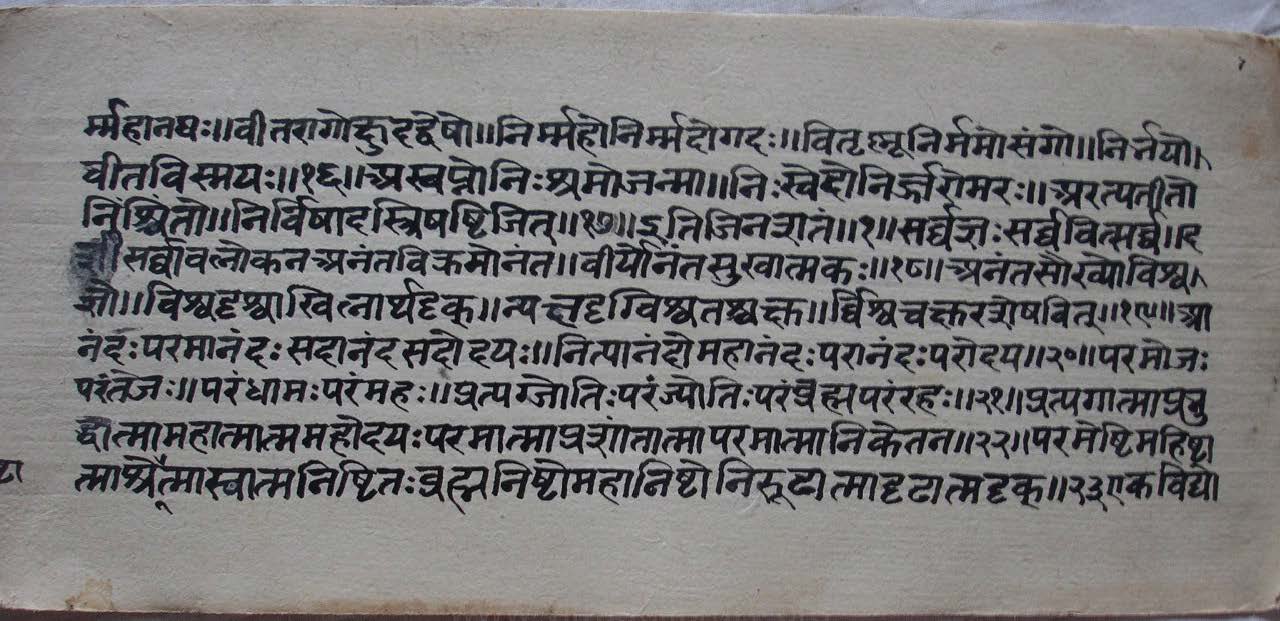 र्म्महातपः॥वीतरागोक्षुदद्वेषो॥निर्म्महोनिर्म्मदोगदः॥वितृष्णनिर्ममोसंगो॥निर्भयो
वीतविस्मयः॥१६॥अस्वप्नोनिःश्रमोजन्मा॥निःस्वेदोनिर्ज्जरोमरः॥अरत्यतीतो
निश्चिंतो॥निर्विषादस्त्रिषष्टिजित्॥१७॥इतिजिनशतं॥१॥सर्व्वज्ञःसर्व्ववित्सर्व्व॥द
र्शीसर्व्वावलोकनअनंतविक्रमोनंत॥वीर्योनंतसुखात्मकः॥१८॥अनंतसौख्योविश्व
ज्ञो॥विश्वदृश्वाखिलार्थदृक्॥न्यक्षदृग्विश्वतश्चक्षु॥र्विश्वचक्षुरशेषवित्॥१९॥आ
नंदःपरमानंदःसदानंदसदोदयः॥नित्यानंदोमहानंदःपरानंदःपरोदय॥२०॥परमोजः
परंतेजः॥परंधामःपरंमहः॥प्रत्यग्जोतिःपरंज्योतिःपरंब्रह्मपरंरहः॥२१॥प्रत्यगात्माप्रबु
द्धात्मामहात्मात्ममहोदयःपरमात्माप्रशांतात्मापरमात्मानिकेतन॥२२॥परमेष्टिमहिष्टा
त्माश्रेत्मास्वात्मनिष्टितःब्रह्मनिष्टोमहानिष्टोनिरूढात्मादृढात्मदृक्॥२३एकविद्यो
ष्टा